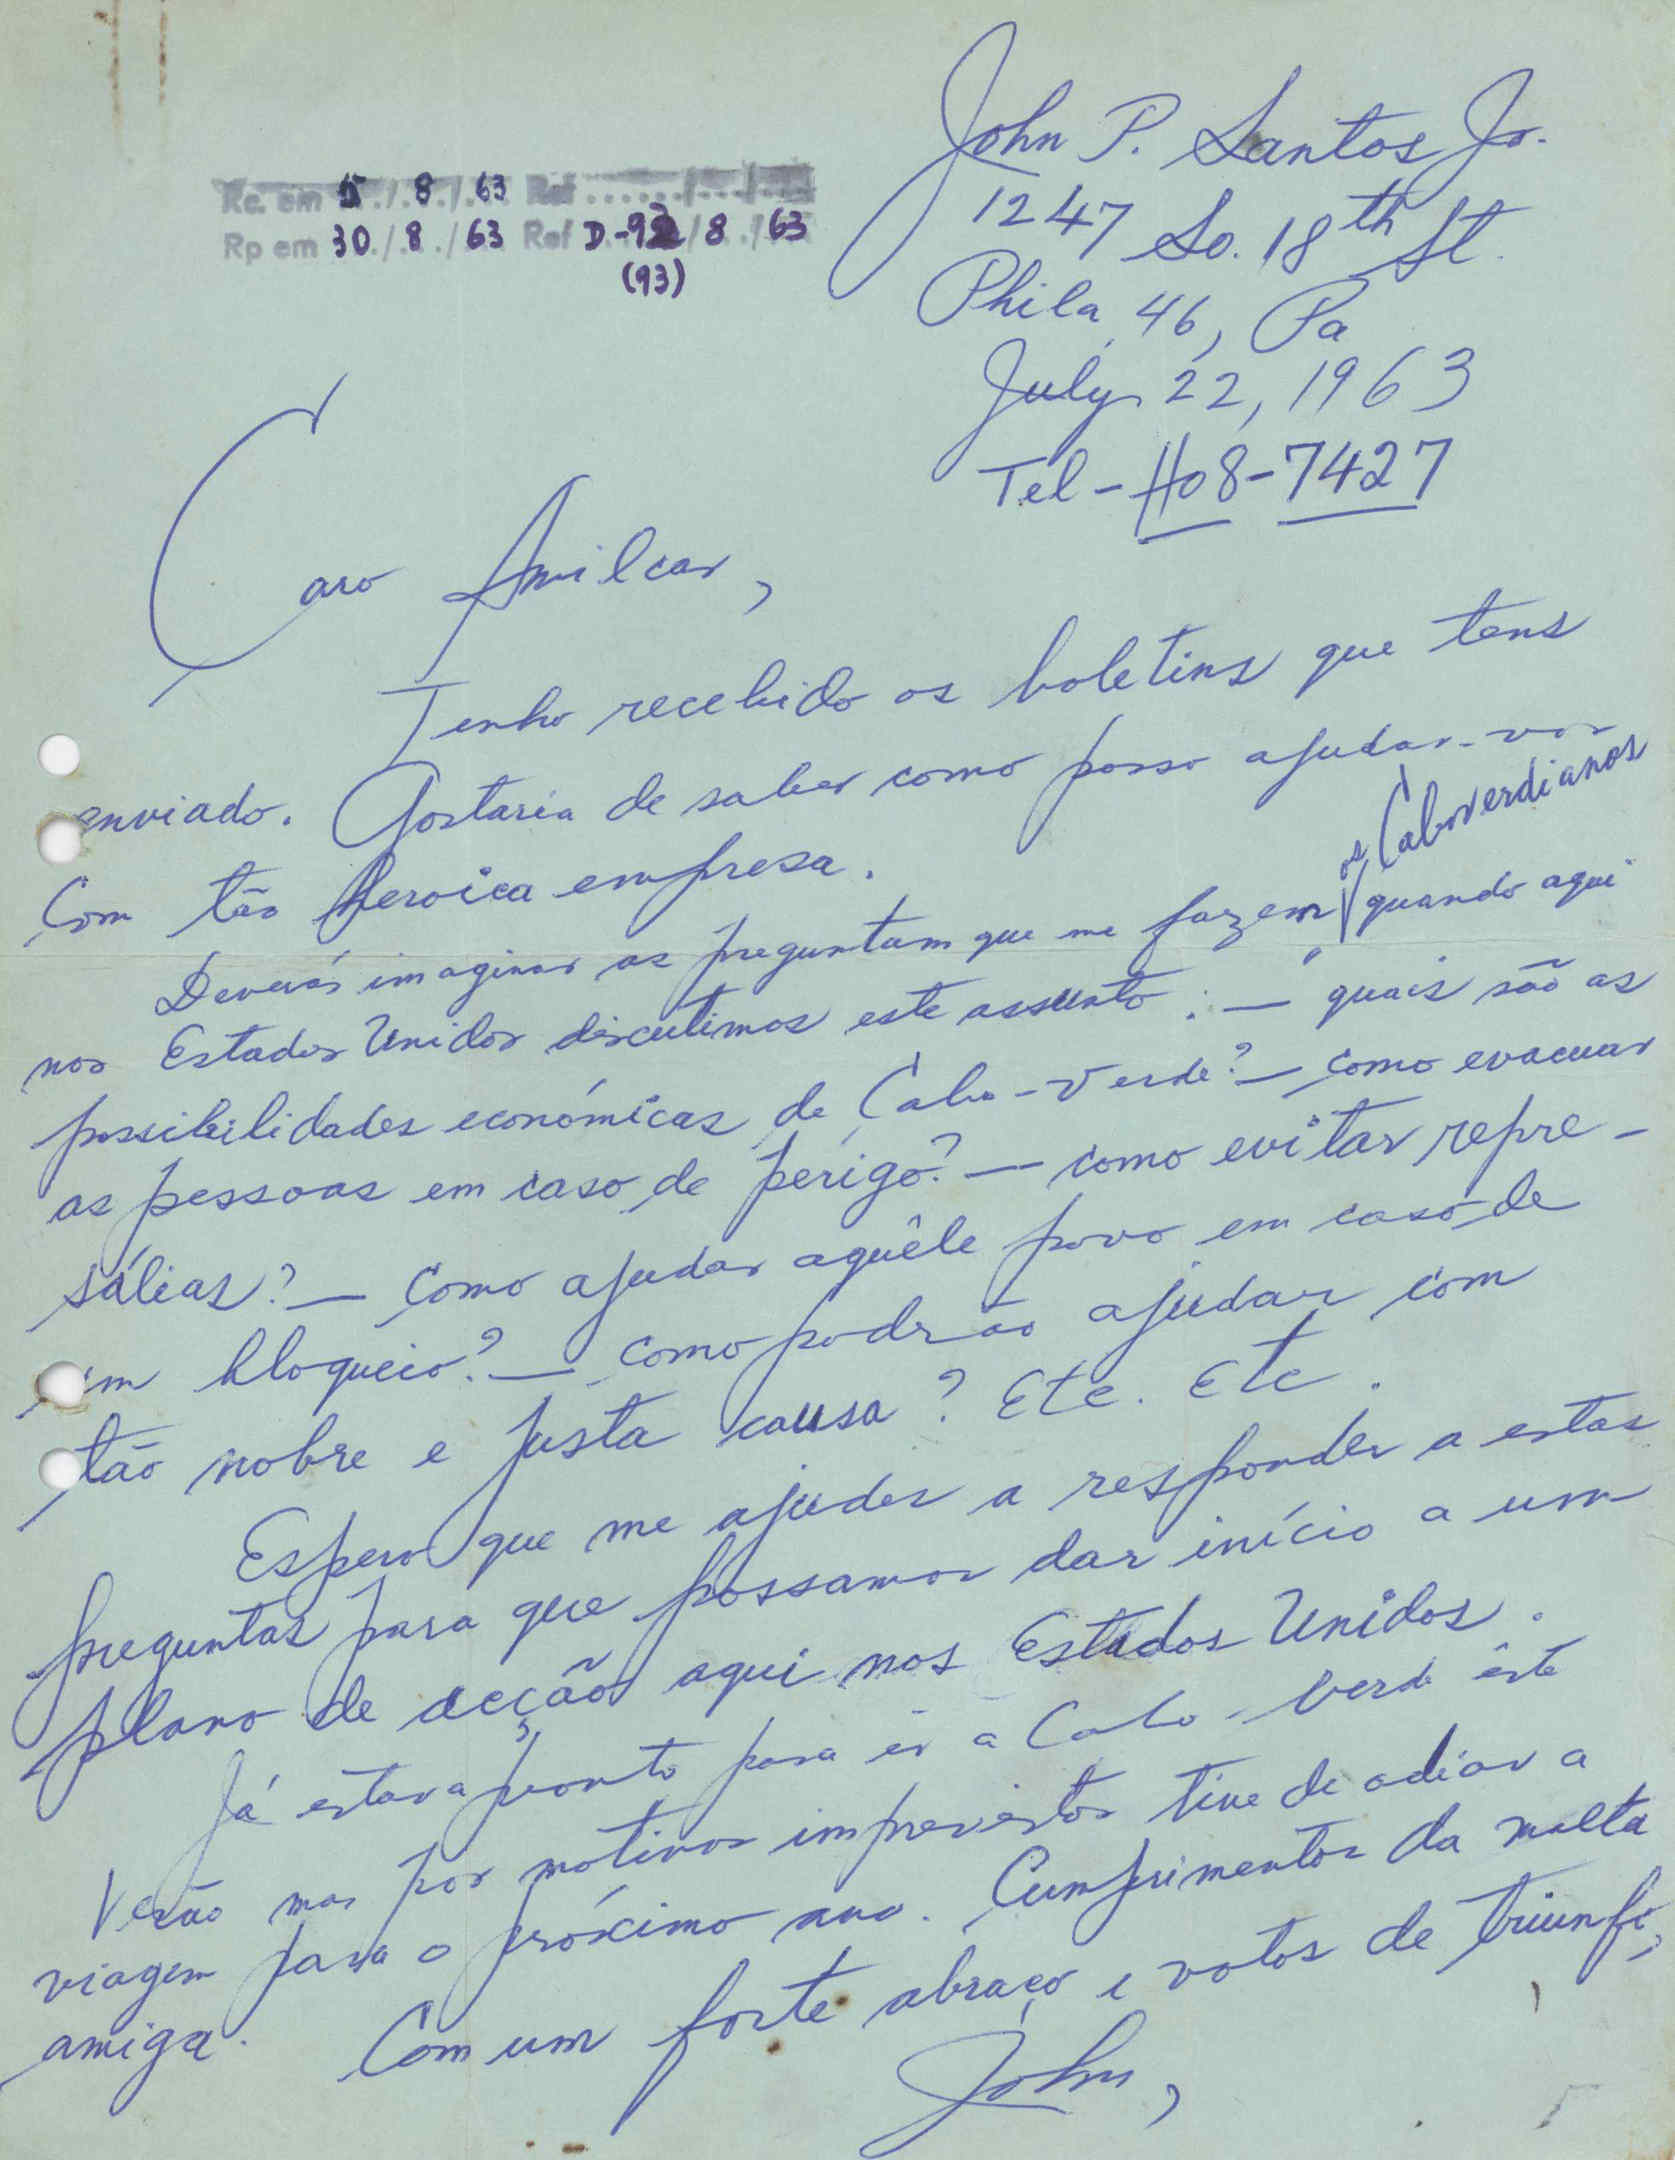 John P. Santos Jr.
1247 So. 18th St.
Phila, 46, Pa
July 22, 1963
Tel - HO8-7427
Re. em 5./.8./.63 Ref ....../.../...
Rp em 30./.8./63 Ref D-92/8./63
(93)
Caro Amilcar,
Tenho recebido os boletins que tens
enviado. Gostaria de saber como posso ajudar-vos
com tão heroica empresa.
os Caboverdianos
Deverás imaginar as preguntam que me fazem quando aqui
nos Estados Unidos discutimos este assunto: — "quais são as
possibilidades económicas de Cabo-Verde? — como evacuar
as pessoas em caso de perigo? — como evitar repre-
sálias? — Como ajudar aquêle povo em caso de
um bloqueio? — como podrão ajudar com
tão nobre e justa causa? Etc. Etc.
Espero que me ajudes a responder a estas
preguntas para que possamos dar início a um
plano de acção aqui nos Estados Unidos.
Já estava pronto para ir a Cabo-Verde êste
Verão mas por motivos imprevistos tive de adiar a
viagem para o próximo ano. Cumprimentos da malta
amiga. Com um forte abraço e votos de triunfo,
John,